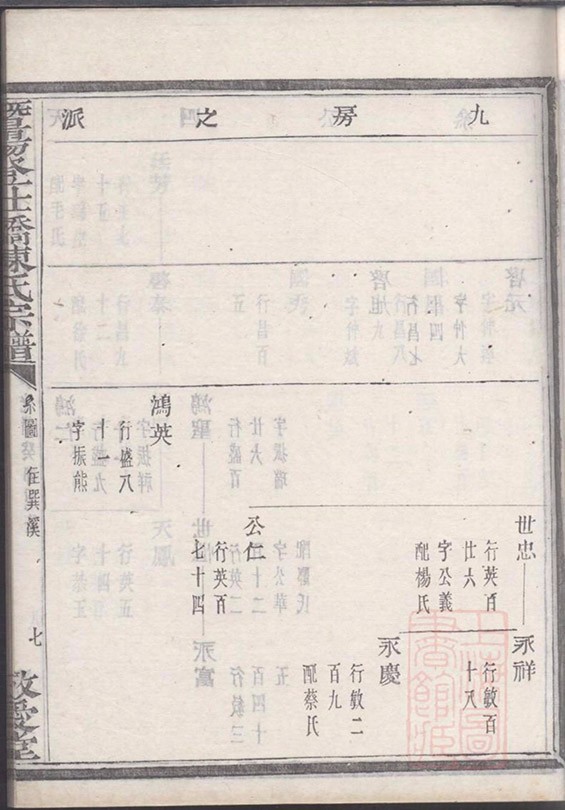 九房之派
世忠
行英百
廿六
字公義
配楊氏
永祥
行敏百
十八
永慶
行敏二
百九
配蔡氏
公仁
行英百
七十四
鴻英
行盛八
十一
字振熊
暨陽
橋陳氏宗譜
系圖
在巽溪
七
敬愛堂